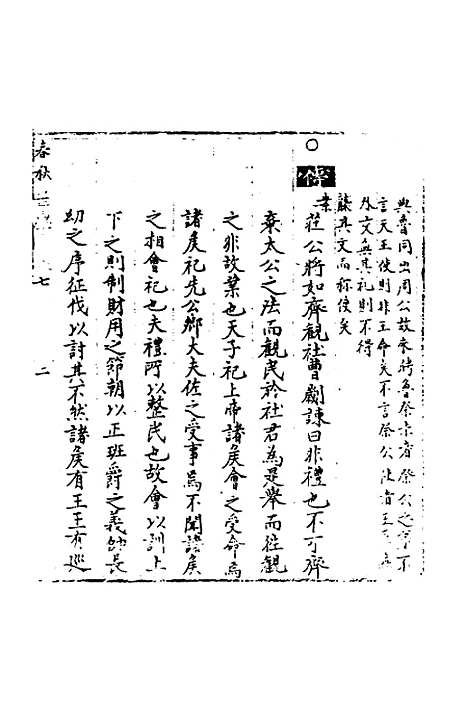 與魯同出周公故來聘魯祭宗者祭公之
言天王使則非王命矣不言祭公
外交無其礼則不得
兼其文而稱使矣
傳 莊公將如齊觀社曹劌諫曰非禮也不可齊
棄太公之法而觀民於社君為是舉而往觀
之非故業也天子祀上帝諸矦會之受命焉
諸矦祀先公卿大夫佐之受事焉不聞諸矦
之相會祀也夫禮所以整民也故會以訓上
下之則制財用之節朝以正班爵之義帥長
幼之序征伐以討其不然諸矦有王王有巡
春秋 七 二